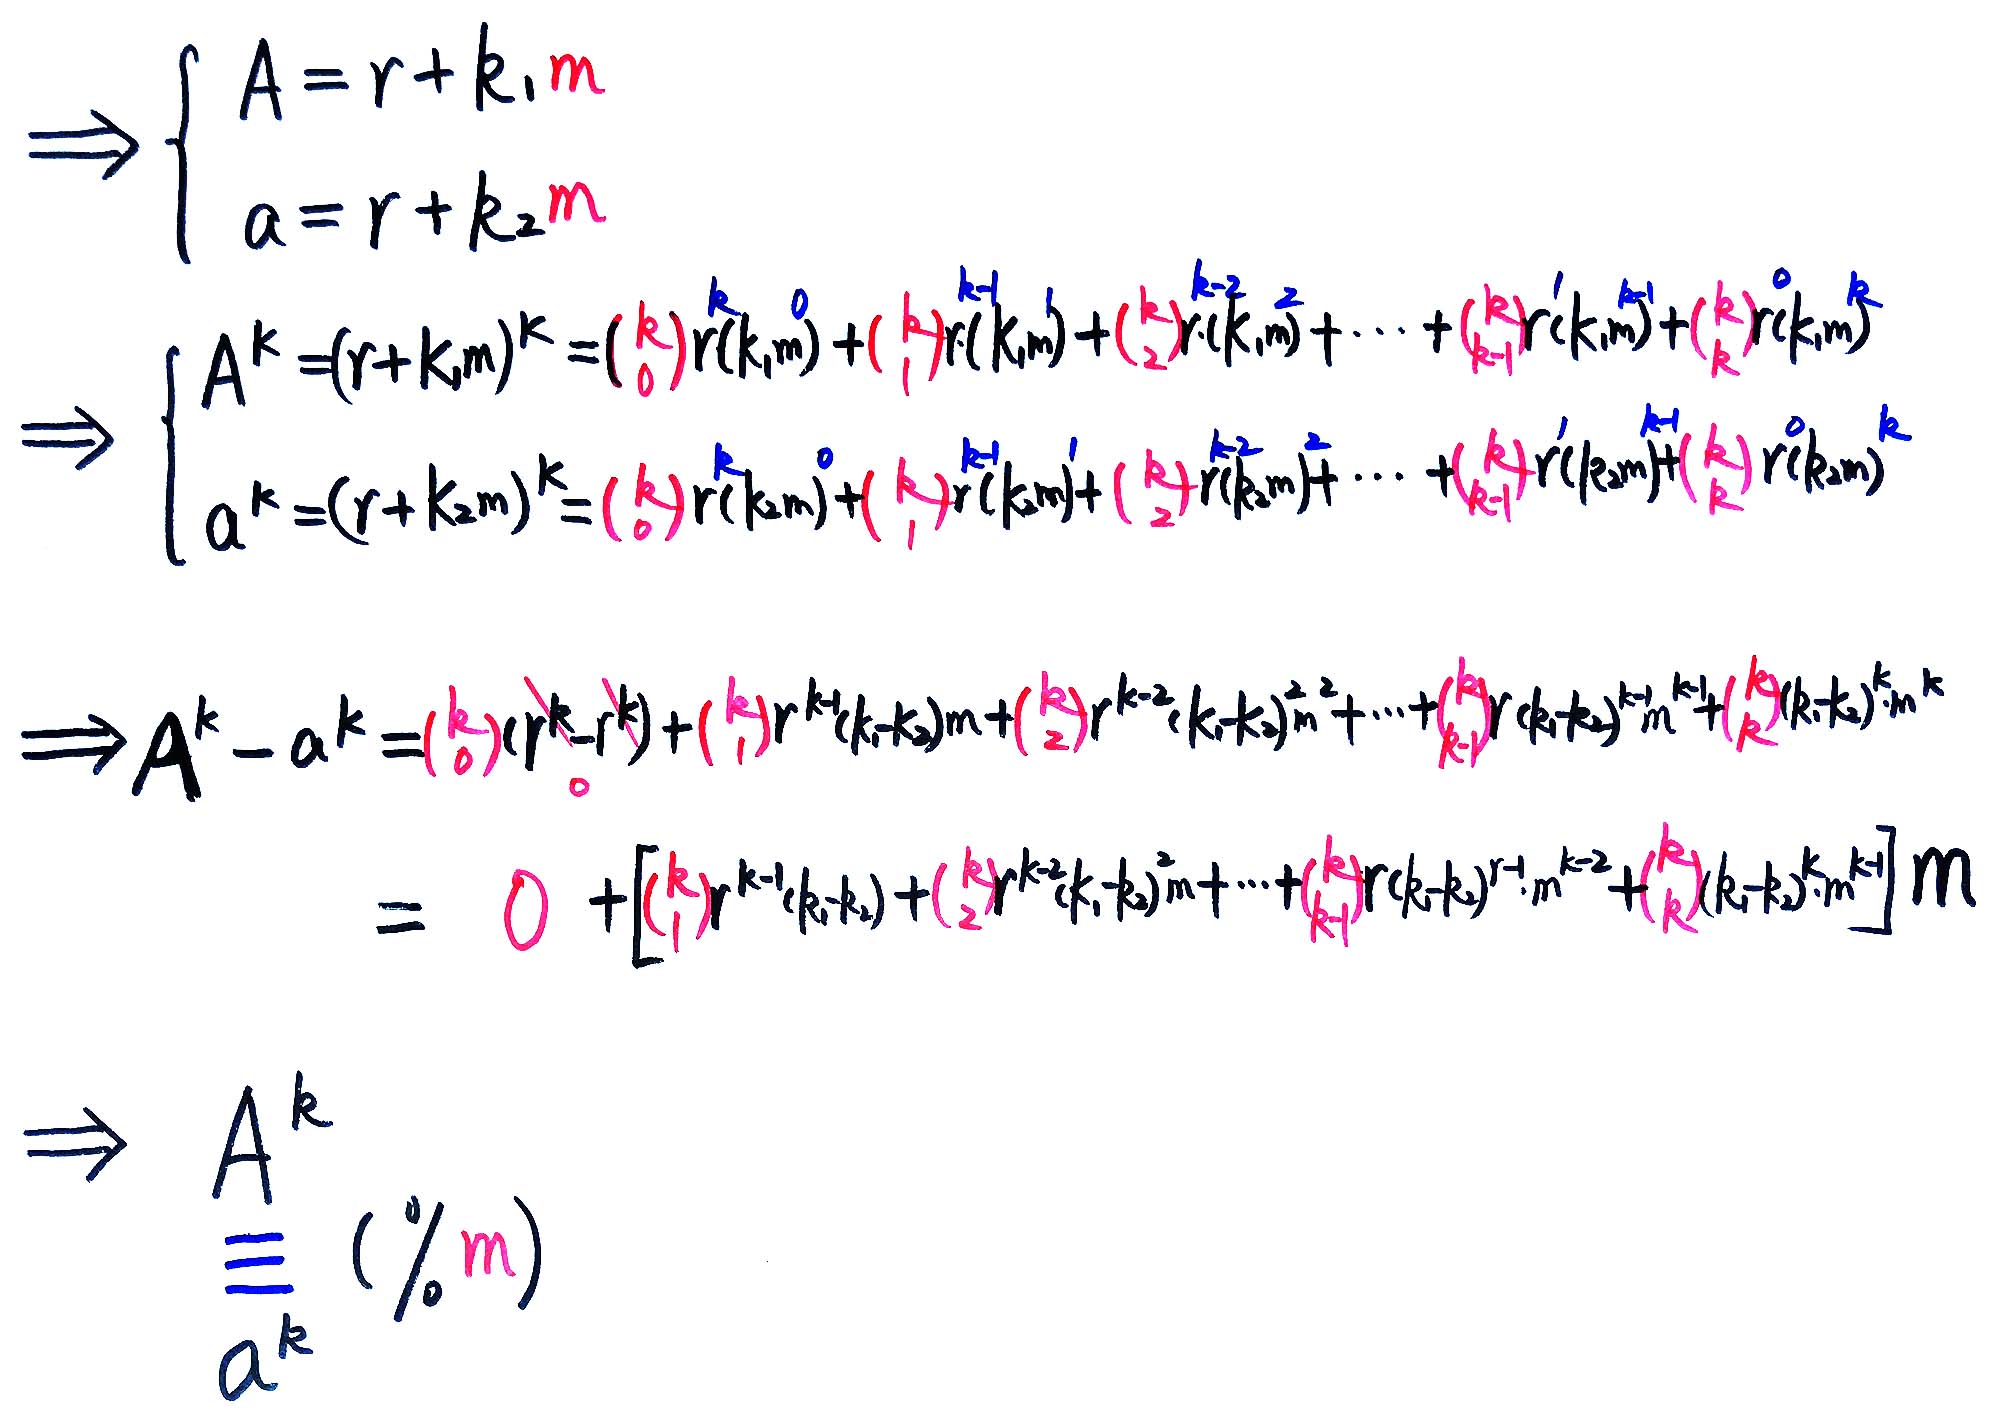 ⟹ { A = r + k₁m
a = r + k₂m
⟹ { A^k = (r + k₁m)^k = (k 0) r^k (k₁m)^0 + (k 1) r^{k-1}·(k₁m)^1 + (k 2) r^{k-2}·(k₁m)^2 + ⋯ + (k k-1) r^1 (k₁m)^{k-1} + (k k) r^0 (k₁m)^k
a^k = (r + k₂m)^k = (k 0) r^k (k₂m)^0 + (k 1) r^{k-1} (k₂m)^1 + (k 2) r^{k-2} (k₂m)^2 + ⋯ + (k k-1) r^1 (k₂m)^{k-1} + (k k) r^0 (k₂m)^k
⟹ A^k - a^k = (k 0) (r^k - r^k) + (k 1) r^{k-1} (k₁-k₂) m + (k 2) r^{k-2} (k₁-k₂)^2 m^2 + ⋯ + (k k-1) r (k₁-k₂)^{k-1} m^{k-1} + (k k) (k₁-k₂)^k · m^k
0
= 0 + [(k 1) r^{k-1} (k₁-k₂) + (k 2) r^{k-2} (k₁-k₂)^2 m + ⋯ + (k k-1) r (k₁-k₂)^{r-1} · m^{k-2} + (k k) (k₁-k₂)^k · m^{k-1}] m
⟹ A^k
≡ (% m)
a^k